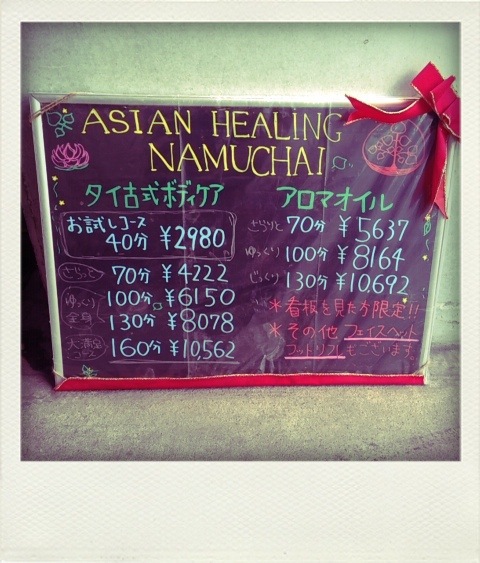 ASIAN HEALING
NAMUCHAI
タイ古式ボディケア
お試しコース
40分 ¥2980
さらっと 70分 ¥4222
ゆっくり 100分 ¥6150
全身 130分 ¥8078
大満足 160分 ¥10,562
アロマオイル
さらりと 70分 ¥5637
ゆっくり 100分 ¥8164
じっくり 130分 ¥10,692
*看板を見た方限定!!
*その他 フェイスヘッド
フットリフレもございます